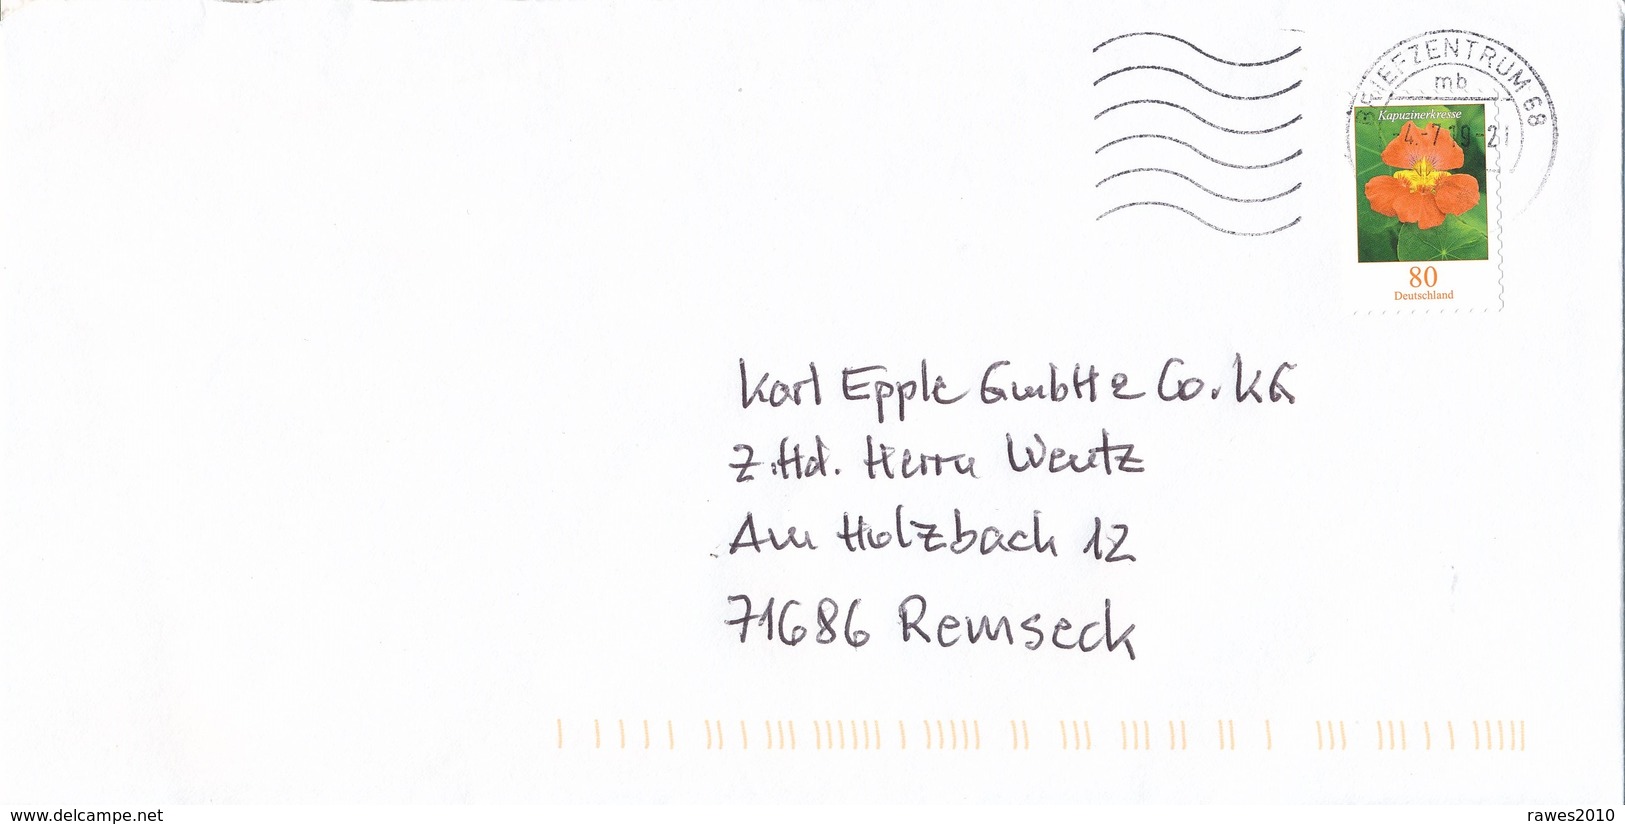 BRIEFZENTRUM 68
mb
-4.-7.19-21
Kapuzinerkresse
80
Deutschland
Karl Epple GmbH & Co. KG
z.Hd. Herrn Wentz
Am Holzbach 12
71686 Remseck
www.delcampe.net
rawes2010